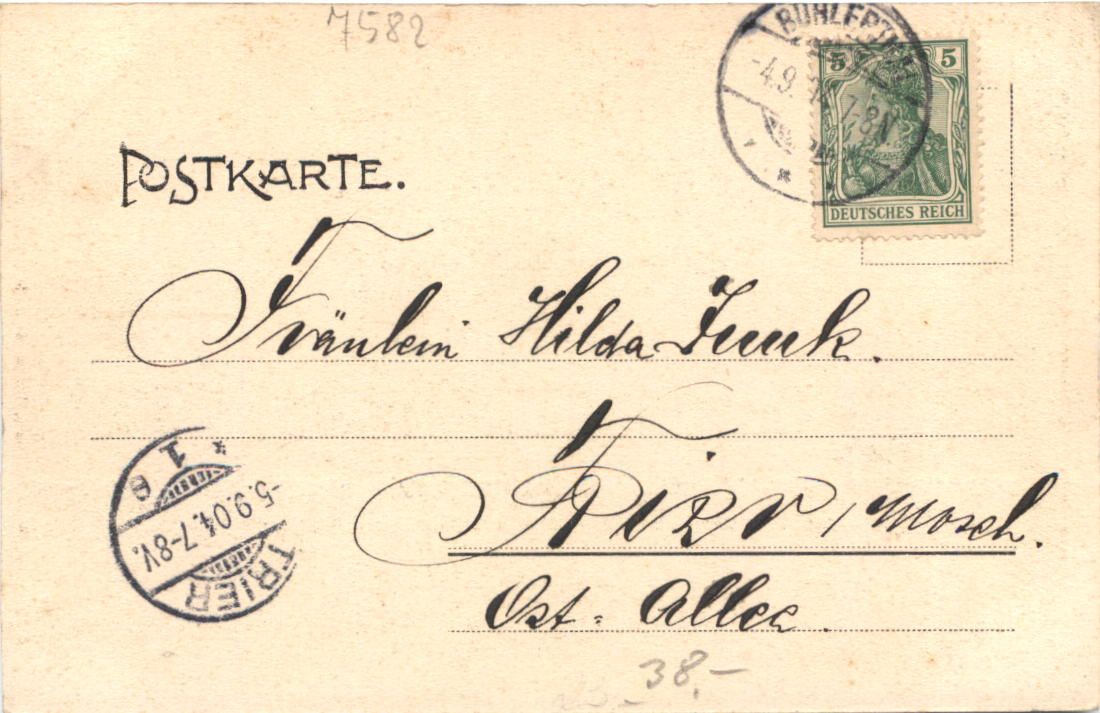 7582
BÜHLERTHAL
-4.9. 7-8N
5 5
DEUTSCHES REICH
POSTKARTE.
Fräulein Hilda Junk.
Trier / Mosel.
Ost-Allee.
* 1 e
-5.9.04.7-8V.
TRIER
38,-